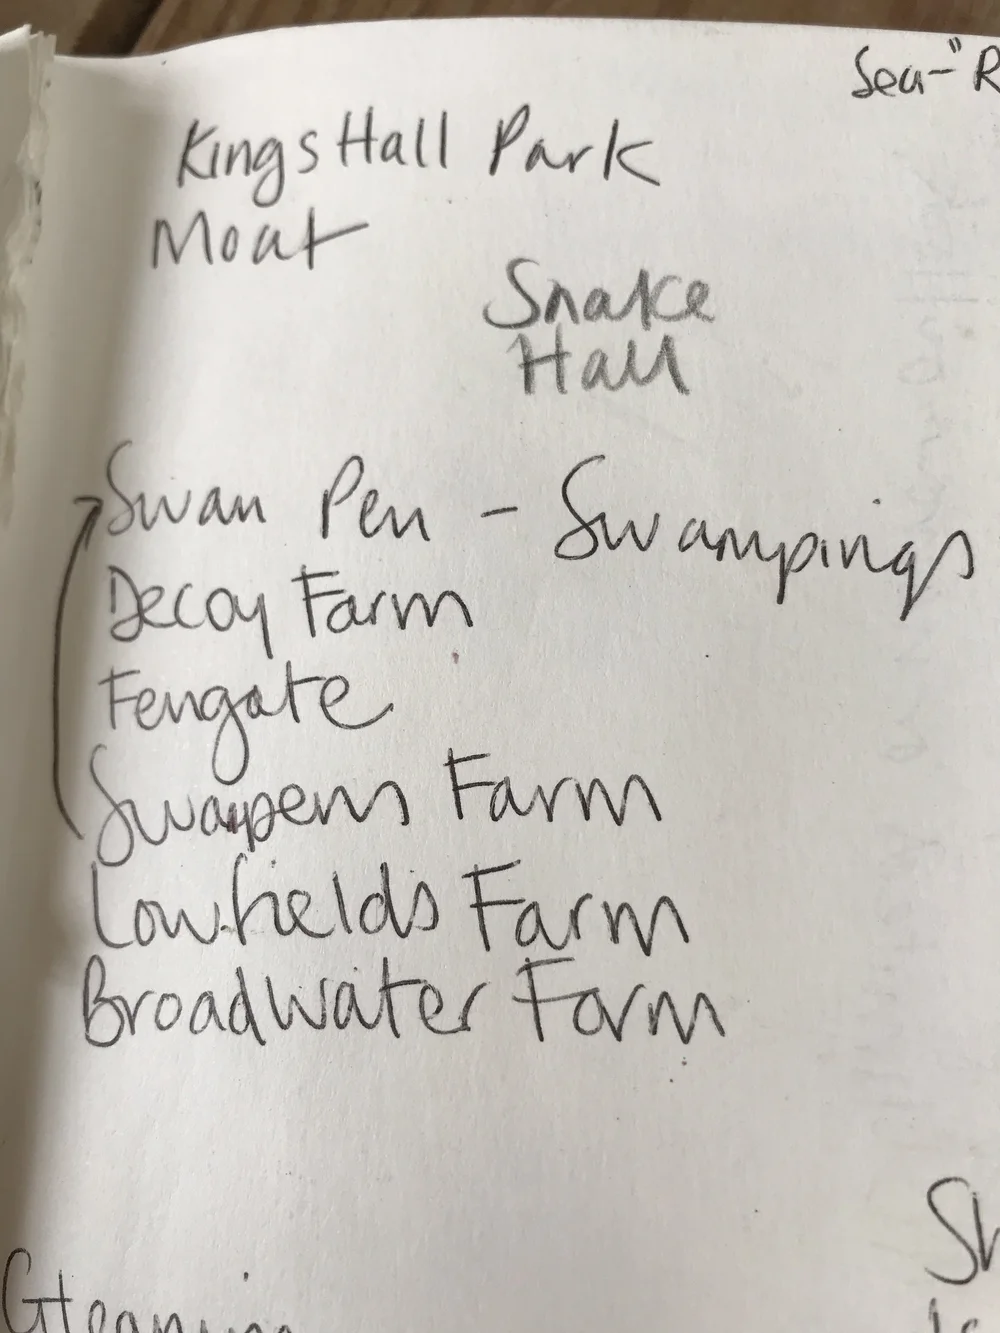 Sea-"R
Kings Hall Park
Moat
Snake
Hall
Swan Pen - Swampings
Decoy Farm
Fengate
Swanpens Farm
Lowfields Farm
Broadwater Farm